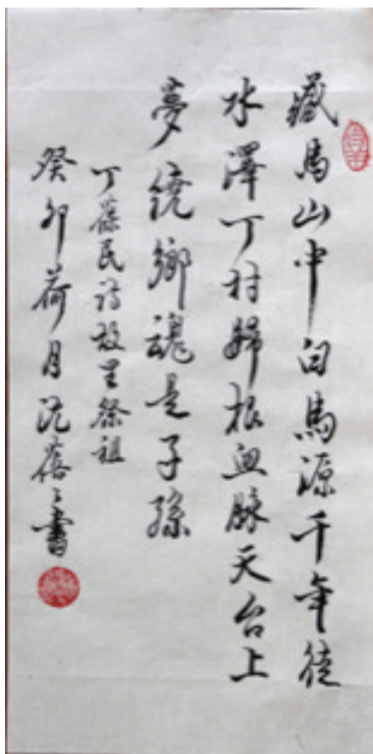 藏馬山中白馬源千年徒
水澤丁村歸根血脉天台上
夢繞鄉魂是子孫
丁葆民詩故里祭祖
癸卯荷月沈蓓之書